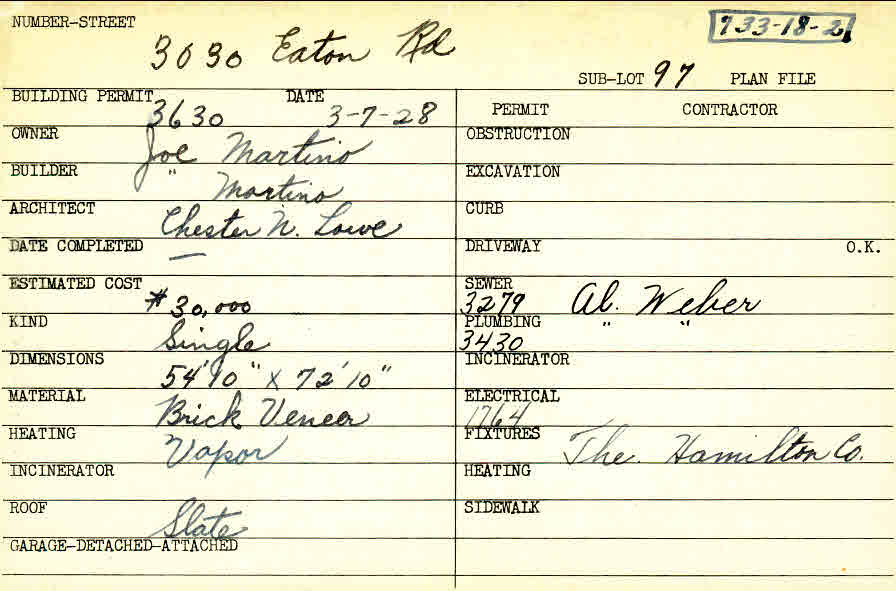 NUMBER-STREET
3030 Eaton Rd
733-18-21
SUB-LOT 97 PLAN FILE
BUILDING PERMIT 3630 DATE 3-7-28
OWNER Joe Martino
BUILDER " Martino
ARCHITECT Chester N. Lowe
DATE COMPLETED —
ESTIMATED COST $30,000
KIND Single
DIMENSIONS 54'10" X 72'10"
MATERIAL Brick Veneer
HEATING Vapor
INCINERATOR
ROOF Slate
GARAGE-DETACHED-ATTACHED
PERMIT CONTRACTOR
OBSTRUCTION
EXCAVATION
CURB
DRIVEWAY O.K.
SEWER
3279 Al. Weber
PLUMBING " "
3430
INCINERATOR
ELECTRICAL
1764
FIXTURES The. Hamilton Co.
HEATING
SIDEWALK